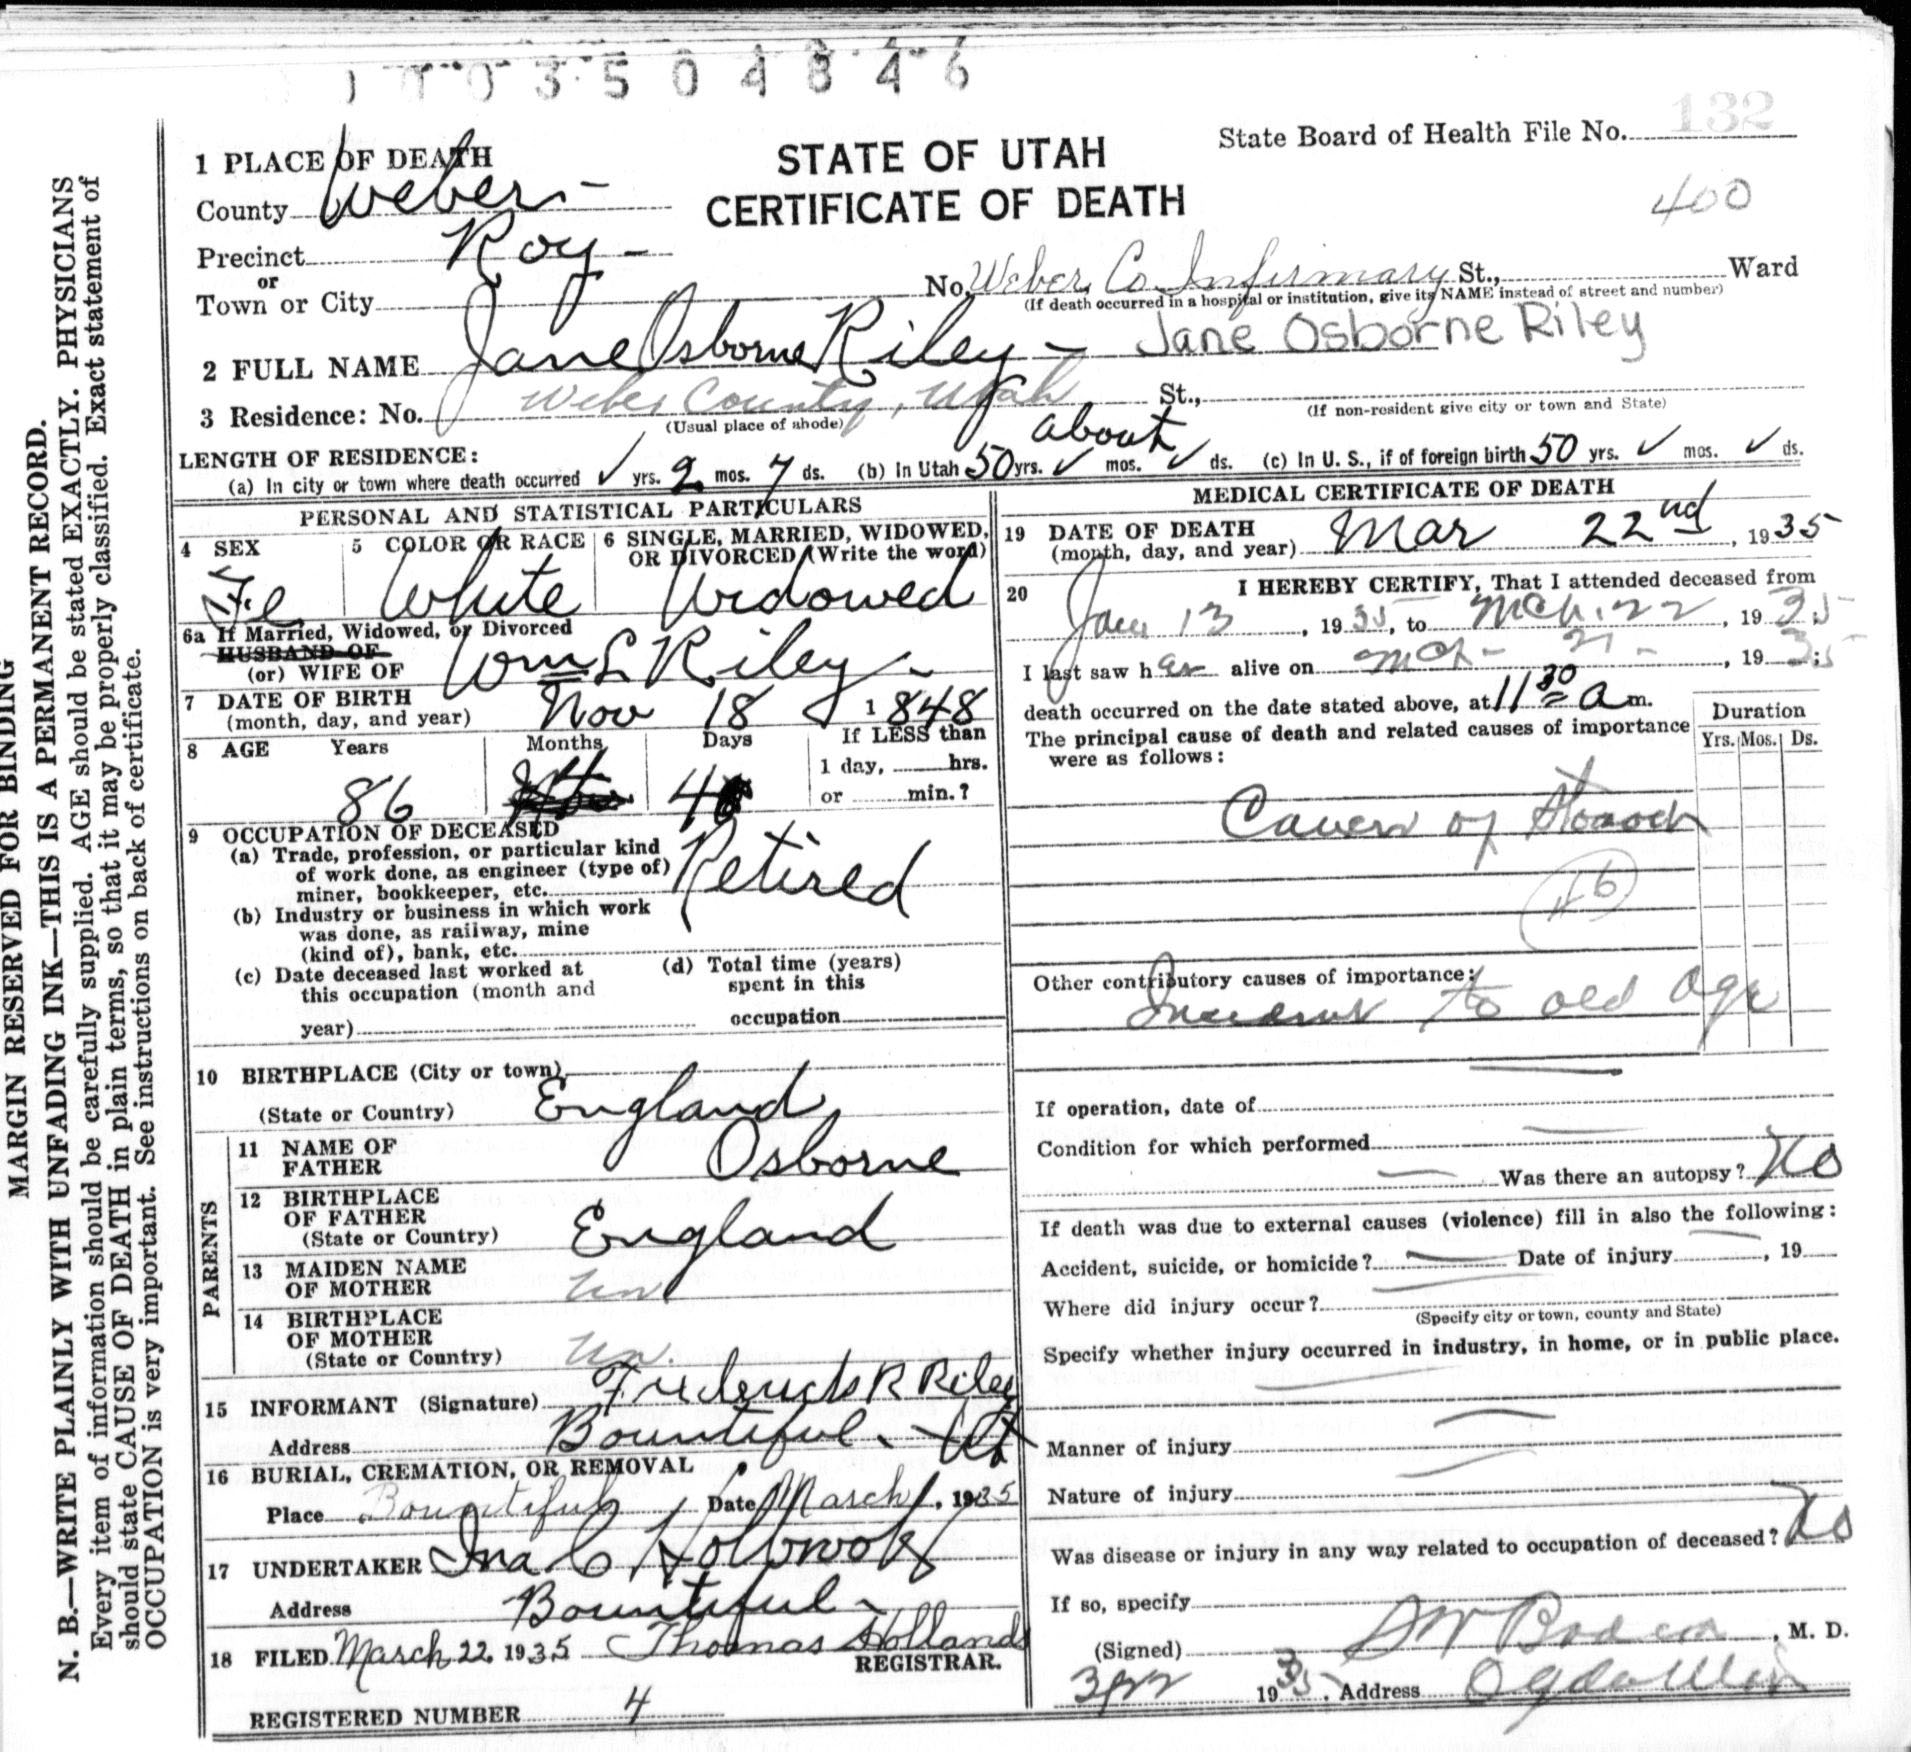 1 1 0 3 5 0 4 8 4 6
State Board of Health File No. 132
400
STATE OF UTAH
CERTIFICATE OF DEATH
1 PLACE OF DEATH
County Weber -
Precinct Roy -
or
Town or City
No. Weber Co Infirmary St., Ward
(If death occurred in a hospital or institution, give its NAME instead of street and number)
2 FULL NAME Jane Osborne Riley - Jane Osborne Riley
3 Residence: No. Weber County, Utah St.,
(Usual place of abode) (If non-resident give city or town and State)
LENGTH OF RESIDENCE: about
(a) In city or town where death occurred ✓ yrs. 2 mos. 7 ds. (b) In Utah 50 yrs. ✓ mos. ✓ ds. (c) In U. S., if of foreign birth 50 yrs. ✓ mos. ✓ ds.
PERSONAL AND STATISTICAL PARTICULARS
4 SEX Fe
5 COLOR OR RACE White
6 SINGLE, MARRIED, WIDOWED, OR DIVORCED (Write the word) Widowed
6a If Married, Widowed, or Divorced
HUSBAND OF
(or) WIFE OF Wm L Riley -
7 DATE OF BIRTH
(month, day, and year) Nov 18 1848
8 AGE Years Months Days If LESS than
1 day, hrs.
or min.?
86 4
9 OCCUPATION OF DECEASED
(a) Trade, profession, or particular kind
of work done, as engineer (type of)
miner, bookkeeper, etc. Retired
(b) Industry or business in which work
was done, as railway, mine
(kind of), bank, etc.
(c) Date deceased last worked at
this occupation (month and
year)
(d) Total time (years)
spent in this
occupation
10 BIRTHPLACE (City or town)
(State or Country) England
PARENTS
11 NAME OF
FATHER Osborne
12 BIRTHPLACE
OF FATHER
(State or Country) England
13 MAIDEN NAME
OF MOTHER Un
14 BIRTHPLACE
OF MOTHER
(State or Country) Un.
15 INFORMANT (Signature) Frederick R Riley
Address Bountiful - Ut
16 BURIAL, CREMATION, OR REMOVAL
Place Bountiful Date March , 1935
17 UNDERTAKER Ina C Holbrook
Address Bountiful -
18 FILED March 22, 1935 Thomas Hollands
REGISTRAR.
REGISTERED NUMBER 4
MEDICAL CERTIFICATE OF DEATH
19 DATE OF DEATH
(month, day, and year) Mar 22nd, 1935
20 I HEREBY CERTIFY, That I attended deceased from
Jan 13, 1935, to Mch. 22, 1935;
I last saw her alive on Mch - 21 -, 1935;
death occurred on the date stated above, at 11 30 a m.
The principal cause of death and related causes of importance
were as follows:
Duration
Yrs. Mos. Ds.
Cancer of Stomach
46
Other contributory causes of importance:
Incident to old age
If operation, date of
Condition for which performed
Was there an autopsy? No
If death was due to external causes (violence) fill in also the following:
Accident, suicide, or homicide? Date of injury , 19
Where did injury occur?
(Specify city or town, county and State)
Specify whether injury occurred in industry, in home, or in public place.
Manner of injury
Nature of injury
Was disease or injury in any way related to occupation of deceased? No
If so, specify
(Signed) , M. D.
3/22 1935. Address Ogden Utah
MARGIN RESERVED FOR BINDING
N. B.—WRITE PLAINLY WITH UNFADING INK—THIS IS A PERMANENT RECORD.
Every item of information should be carefully supplied. AGE should be stated EXACTLY. PHYSICIANS
should state CAUSE OF DEATH in plain terms, so that it may be properly classified. Exact statement of
OCCUPATION is very important. See instructions on back of certificate.